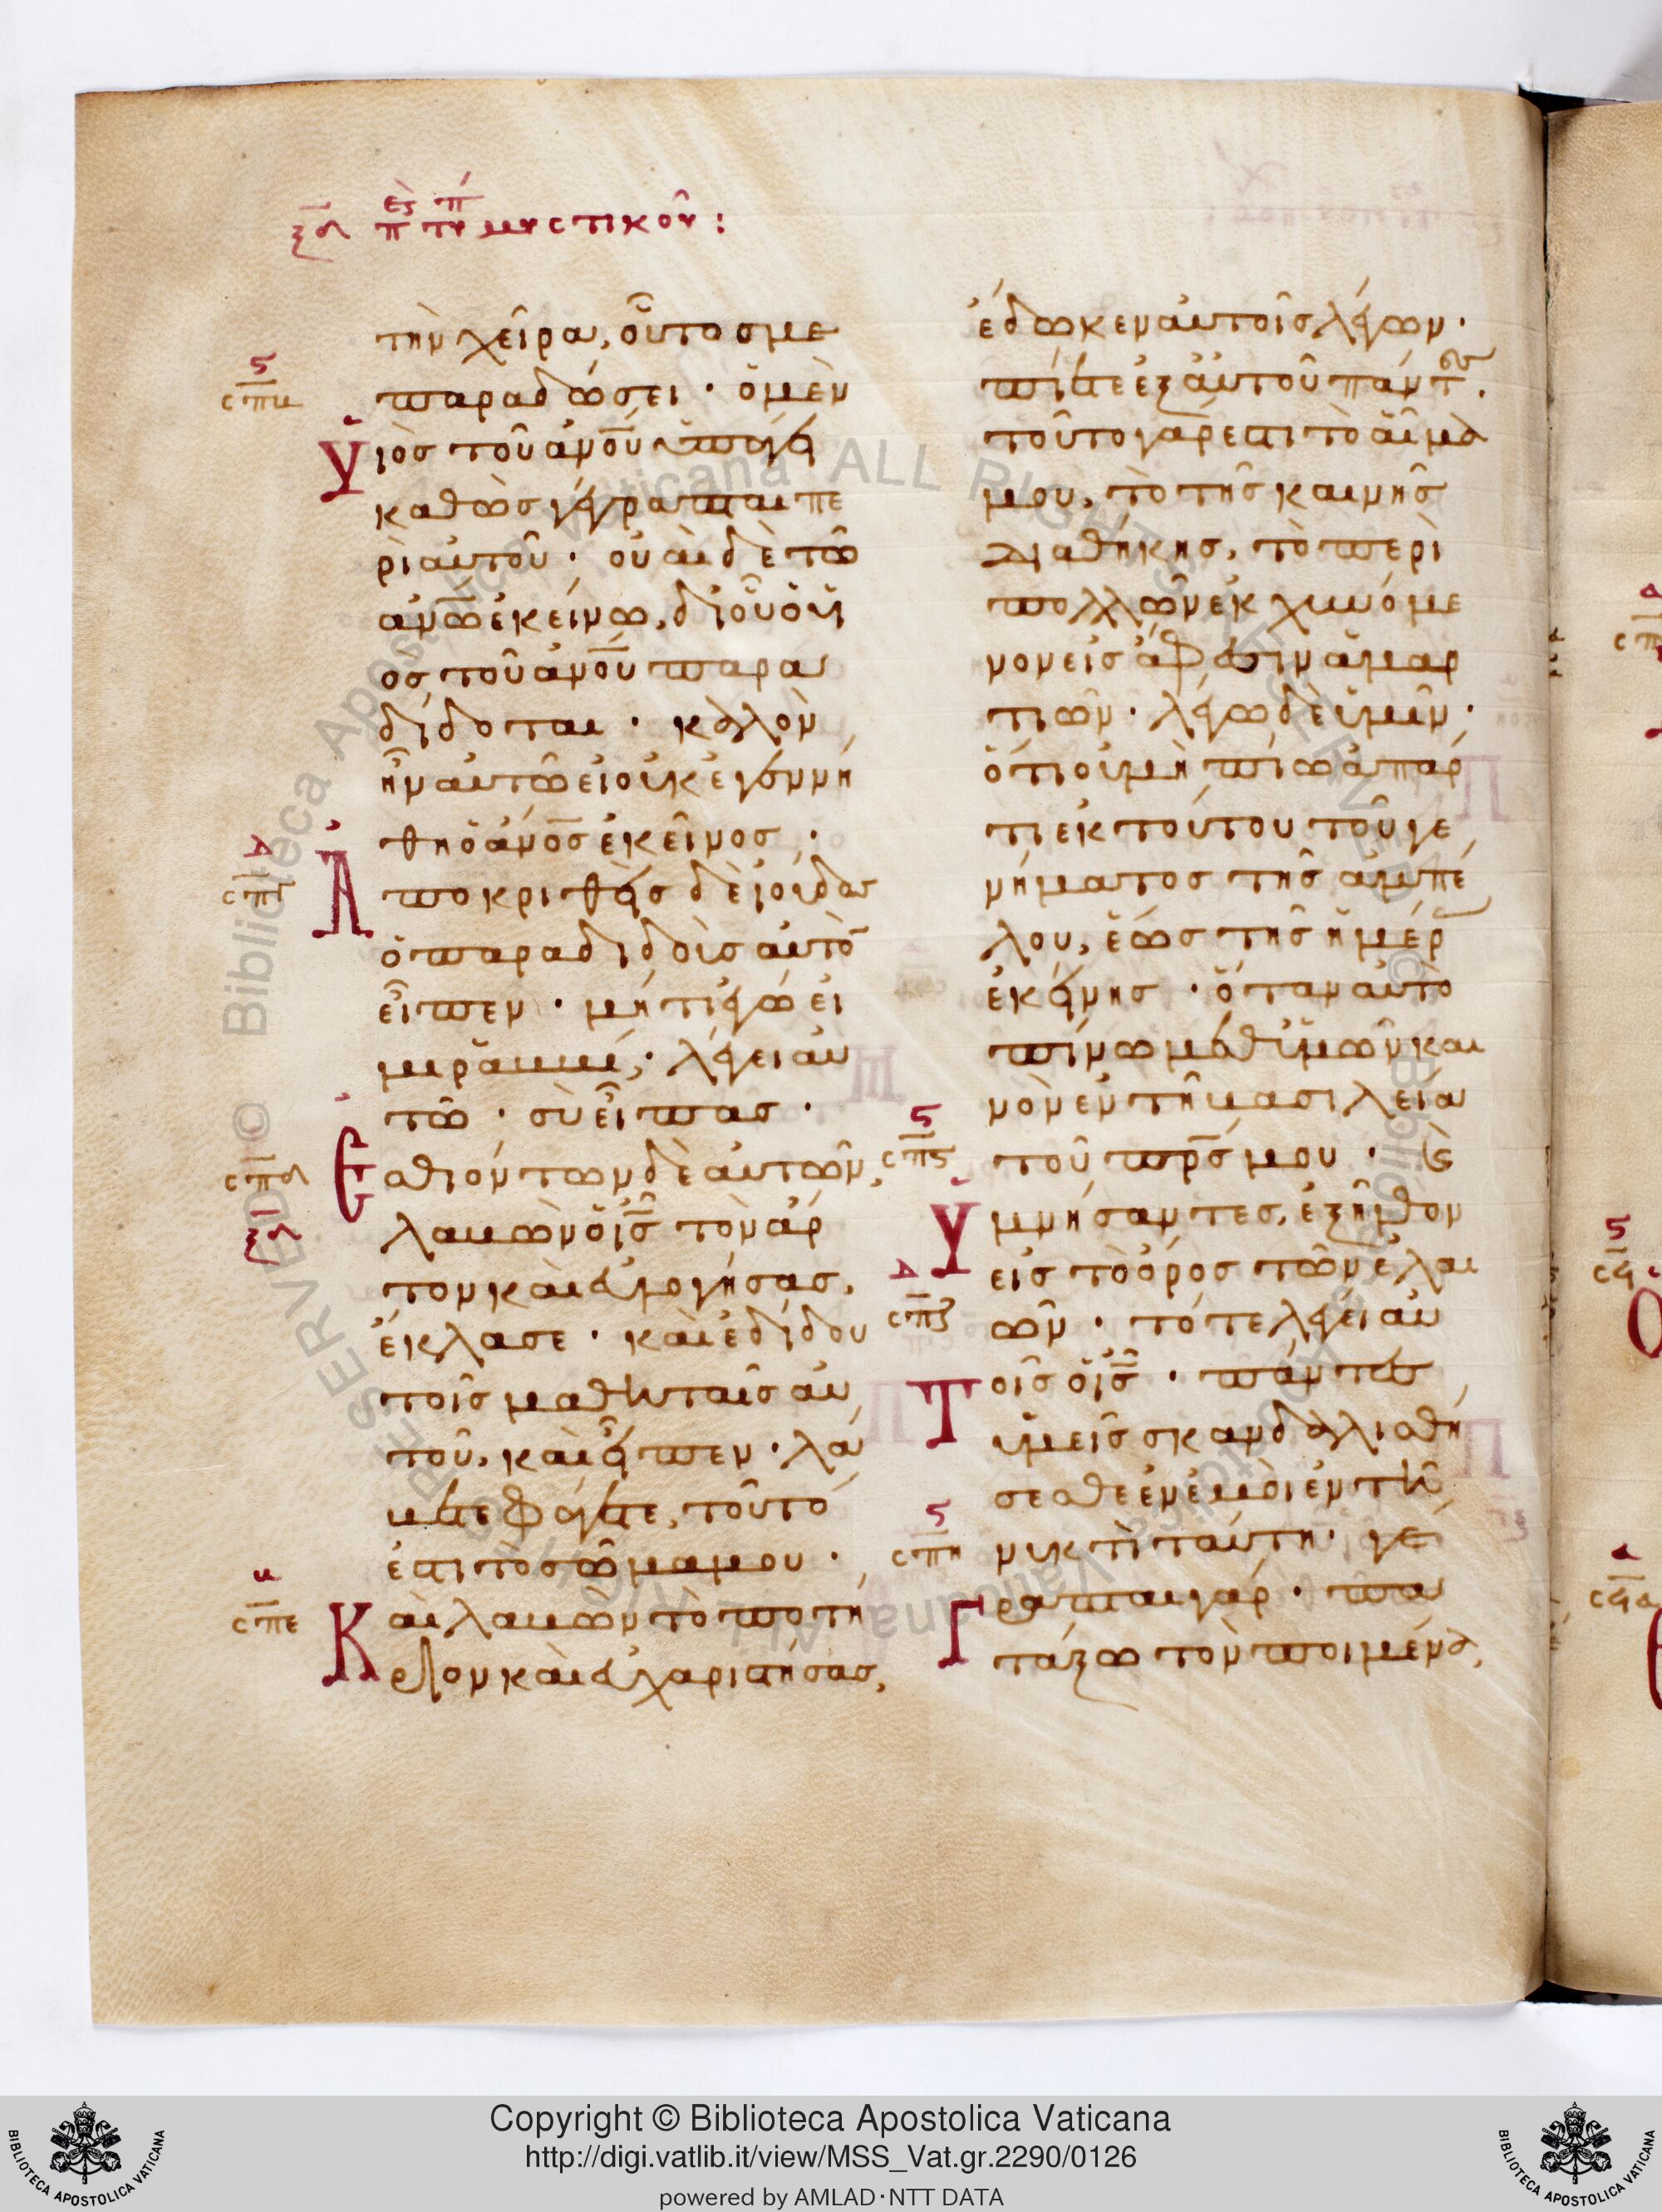 ξδ περὶ τοῦ μυστικοῦ:
τὴν χεῖρα, οὗτος με
παραδώσει · ὁ μὲν
ϛ
σπβ
Υἱὸς τοῦ ἀνου ὑπάγει
καθὼς γέγραπται πε
ρὶ αὐτοῦ · οὐαὶ δὲ τῶ
ανω ἐκείνω, δι οὗ ὁ ὑι
ος τοῦ ἀνου παρα
δίδοται · καλὸν
ἦν αὐτῶ εἰ οὐκ ἐγεννή
θη ὁ ἀνος ἐκεῖνος ·
Δ
σπγ
Ἀποκριθεὶς δὲ ἰούδας
ὁ παραδιδοὺς αὐτὸ
εἶπεν · μήτι ἐγώ εἰ
μι ῥαββί; · λέγει αυ
τῶ · σὺ εἶπας ·
σπδ
ξδ
Ἐσθιόντων δὲ αὐτῶν,
λαβὼν ὁ ις τὸν ἄρ
τον καὶ εὐλογήσας,
ἔκλασε · καὶ ἐδίδου
τοῖς μαθηταῖς αὐ
τοῦ, καὶ εἶπεν · λά
βετε φάγετε, τοῦτό
ἐστι τὸ σῶμα μου ·
α
σπε
Καὶ λαβὼν τὸ ποτή
ριον καὶ εὐχαριστήσας,
ἔδωκεν αὐτοῖς λέγων ·
πίετε ἐξ αὐτοῦ πάντες.
τοῦτο γάρ ἐστι τὸ αἷμά
μου, τὸ τῆς καινῆς
διαθήκης, τὸ περὶ
πολλῶν ἐκχυνόμε
νον εἰς ἄφεσιν ἁμαρ
τιῶν · λέγω δὲ ὑμῖν ·
ὅτι οὐ μὴ πίω ἀπάρ
τι ἐκ τούτου τοῦ γε
νήματος τῆς ἀμπέ
λου, ἕως τῆς ἡμέρ
ἐκείνης · ὅταν αὐτὸ
πίνω μεθ ὑμῶν και
νὸν ἐν τῆ βασιλεία
τοῦ πρς μου · (καὶ)
ϛ
σπϛ
Ὑμνήσαντες, ἐξῆλθον
εἰς τὸ ὄρος τῶν ἐλαι
Δ
σπζ
ῶν · τότε λέγει αὐ
Τοῖς ὁ ις · πάντες
ὑμεῖς σκανδαλισθή
σεσθε ἐν ἐμοὶ ἐν τῆ
ϛ
σπη
νυκτὶ ταύτη · γέ
Γραπται γάρ · πα
τάξω τὸν ποιμένα,
Copyright © Biblioteca Apostolica Vaticana
http://digi.vatlib.it/view/MSS_Vat.gr.2290/0126
powered by AMLAD·NTT DATA
BIBLIOTECA APOSTOLICA VATICANA
BIBLIOTECA APOSTOLICA VATICANA